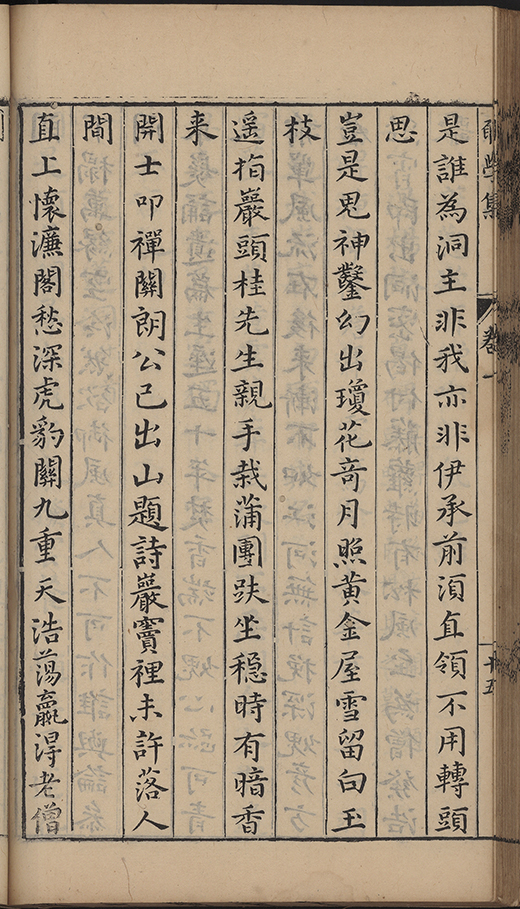 學集 卷一 十五
是誰為洞主非我亦非伊承前須直領不用轉頭
思
豈是鬼神鑿幻出瓊花竒月照黃金屋雪留白玉
枝
遥指巖頭桂先生親手栽蒲團趺坐穏時有暗香
来
開士叩禪關朗公已出山題詩巖竇裡未許落人
間
直上懷濂閣愁深虎豹關九重天浩蕩贏得老僧